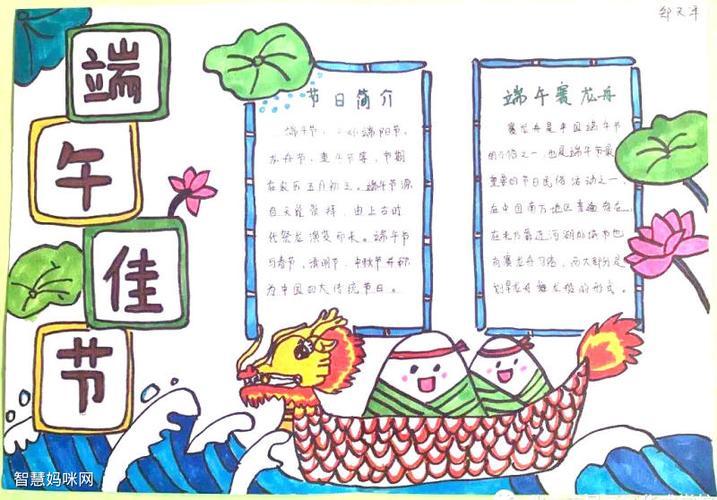 端午佳节
节日简介
端午节，端阳节，
龙舟节，重午节等，节期
在农历五月初五。端午节源
自天象崇拜，由上古时
代祭龙演变而来。端午节
与春节、清明节、中秋节并称
为中国四大传统节日。
端午赛龙舟
赛龙舟是中国端午节
的习俗之一，也是端午节最
重要的节日民俗活动之一，
在中国南方地区普遍存在，
在北方靠近河湖的城市也
有赛龙舟习俗，而大部分是
划旱龙舟舞龙船的形式。
智慧妈咪网